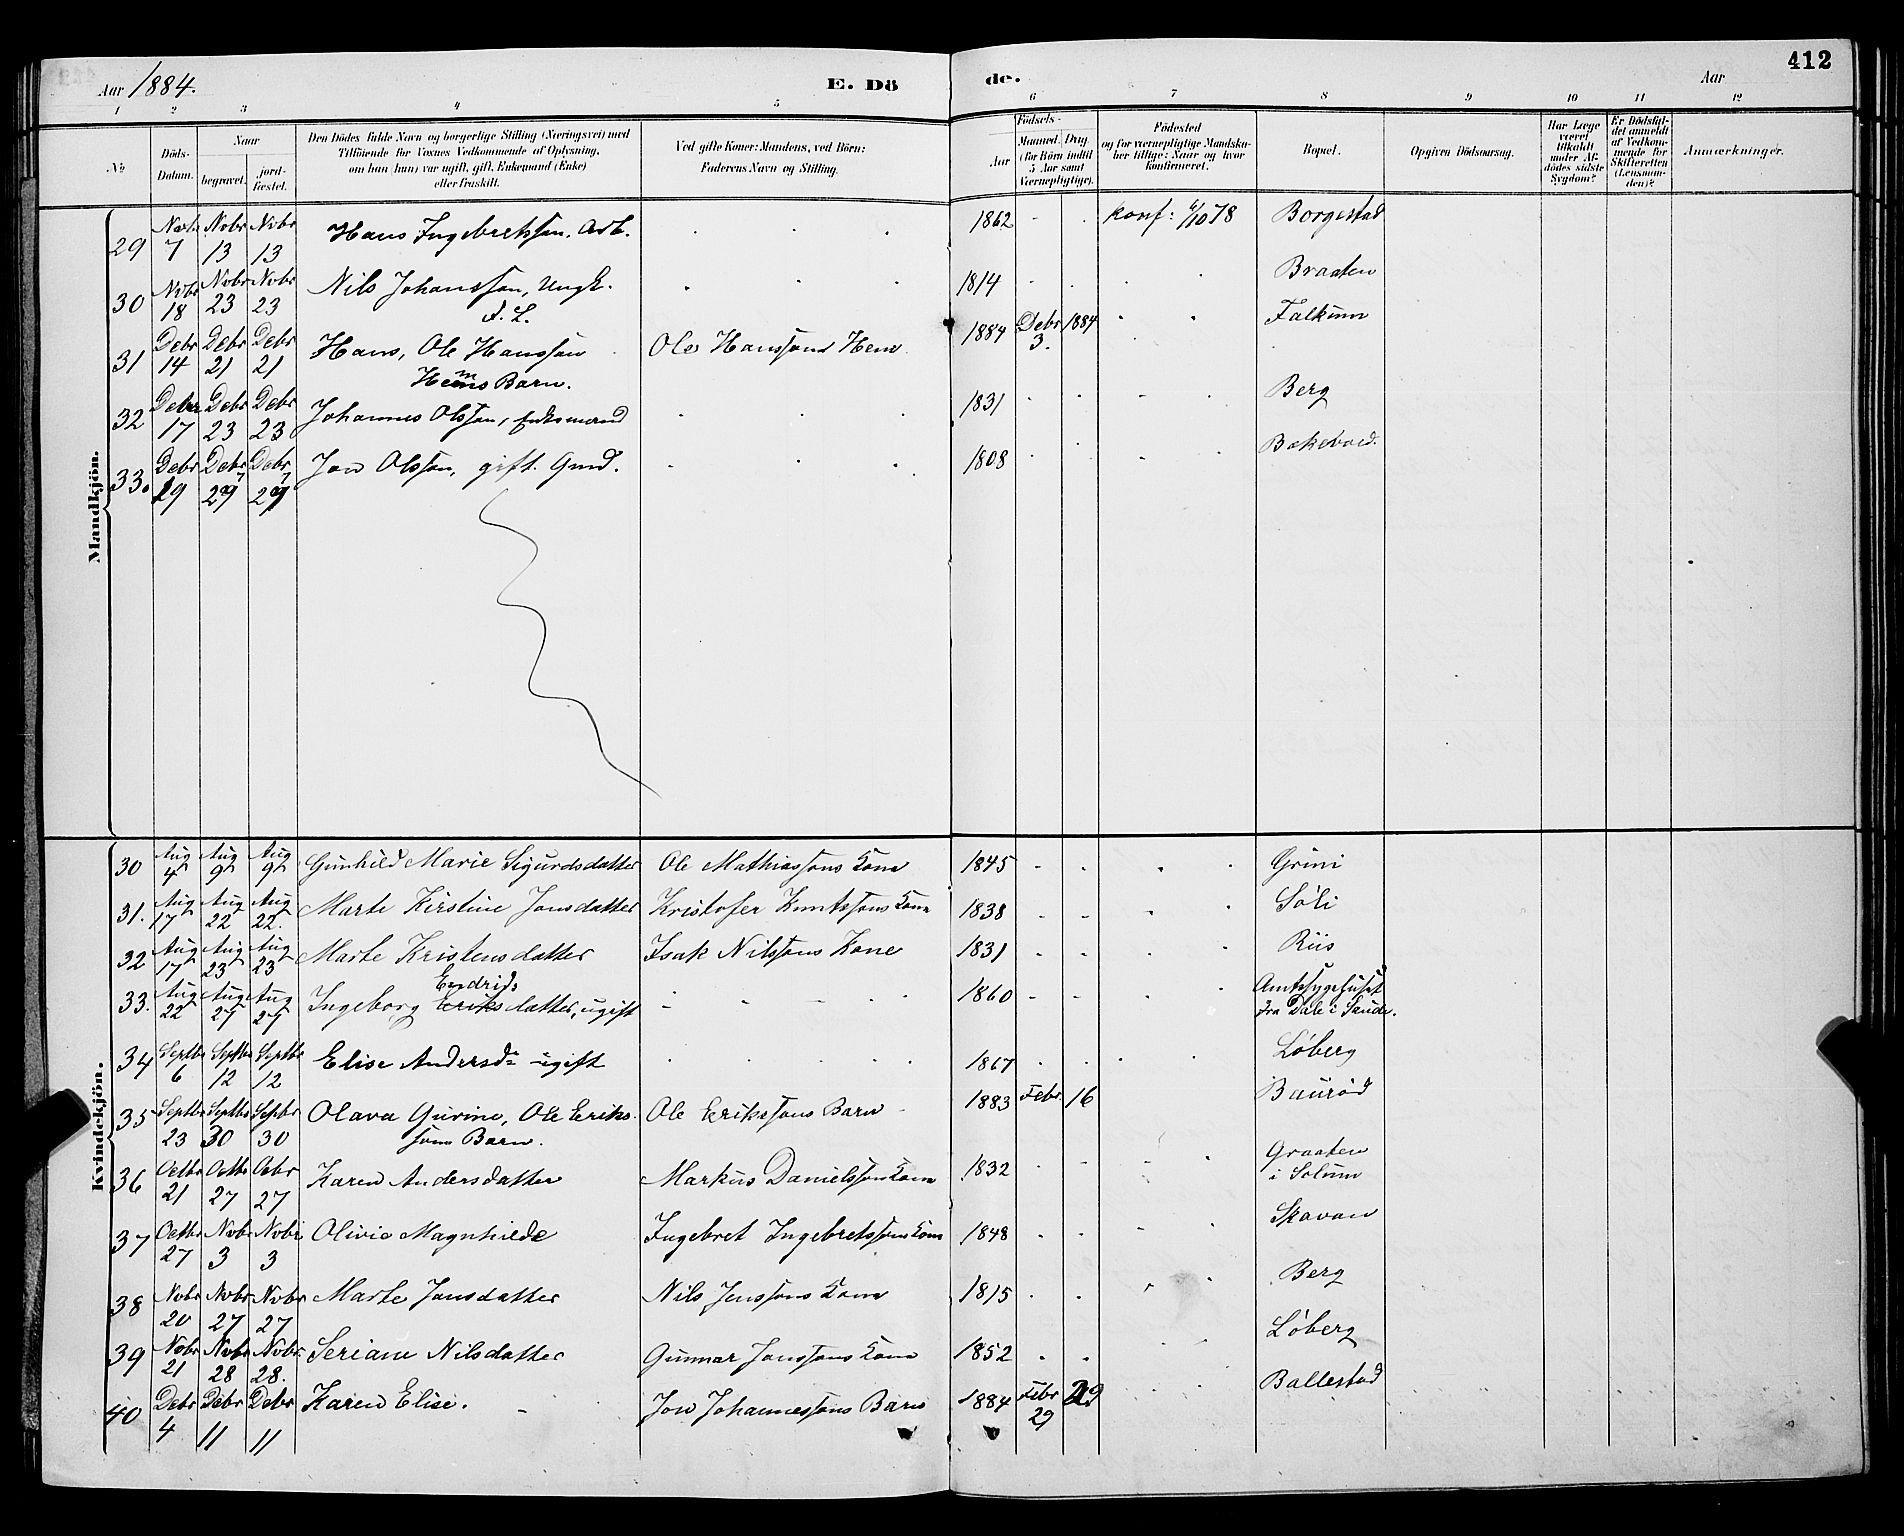 412
Aar 1884. E. Dö de. Aar
1 2 3 4 5 6 7 8 9 10 11 12
No Döds-Datum. Naar begravet. jordfæstet. Den Dödes fulde Navn og borgerlige Stilling (Næringsvei) med Tilföiende for Voxnes Vedkommende af Oplysning, om han (hun) var ugift, gift, Enkemand (Enke) eller fraskilt. Ved gifte Koner: Mandens, ved Börn: Faderens Navn og Stilling. Födsels- Aar Maaned. Dag. (for Börn indtil 5 Aar samt Værnepligtige). Födested og for værnepligtige Mandskaber tillige: Naar og hvor konfirmeret. Bopæl. Opgiven Dödsaarsag. Har Læge været tilkaldt under Afdödes sidste Sygdom? Er Dödsfaldet anmeldt af Vedkommende for Skifteretten (Lensmanden)? Anmærkninger.
Mandkjön.
29 Nobr 7 Nobr 13 Nobr 13 Hans Ingebretsson, Arb. 1862 konf: 6/10 78 Borgestad
30 Nobr 18 Nobr 23 Nobr 23 Nils Johansson, Ungk. 1814 Braaten
F. L.
31 Debr 14 Debr 21 Debr 21 Hans, Ole Hanssøn Ole Hanssøns Hem 1884 Debr 3. 1884 Falkum
Hems Barn.
32 Debr 17 Debr 23 Debr 23 Johannes Olsson, Enkemand 1831 Berg
33. Debr 19 Debr 29 Debr 29 Jon Olsson, gift. Gmd. 1808 Bakevold.
Kvindekjön.
30 Aug 4 Aug 9 Aug 9 Gunhild Marie Sigurdsdatter Ole Mathiassons Kone 1845 Grini
31. Aug 17 Aug 22 Aug 22. Marte Kirstine Jonsdatter Kristofer Knutssons Kone 1838 Soli
32 Aug 17 Aug 23 Aug 23 Marte Kristensdatter Isak Nilssons Kone 1831 Riis
Endrids
33. Aug 22 Aug 27 Aug 27 Ingeborg Eriksdatter, ugift 1860 Amtssygehuset
fra Dale i Sande.
34 Septbr 6 Septbr 12 Septbr 12 Elise Andersd: ugift 1867 Løberg
35 Septbr 23 Septbr 30 Septbr 30 Olava Gurine, Ole Eriks- Ole Erikssons Barn 1883 Febr. 16 Baurød
sons Barn.
36 Octbr 21 Octbr 27 Ocbr 27 Karen Andersdatter Markus Danielssons Kone 1832 Graaten
i Solum
37 Octbr 27 Nobr 3 Nobr 3 Olivie Magnhilde Ingebret Ingebretssons Kone 1848 Skavan
38 Nobr 20 Nobr 27 Nobr 27 Marte Jonsdatter Nils Jenssons Kone 1815 Berg
39 Nobr 21 Nobr 28 Nobr. 28. Seriane Nilsdatter Gunnar Jonssons Kone 1852 Løberg
40 Debr 4 Debr 11 Debr 11 Karen Elise. Jon Johannessons Barn 1884 Febr 29 29 Ballestad